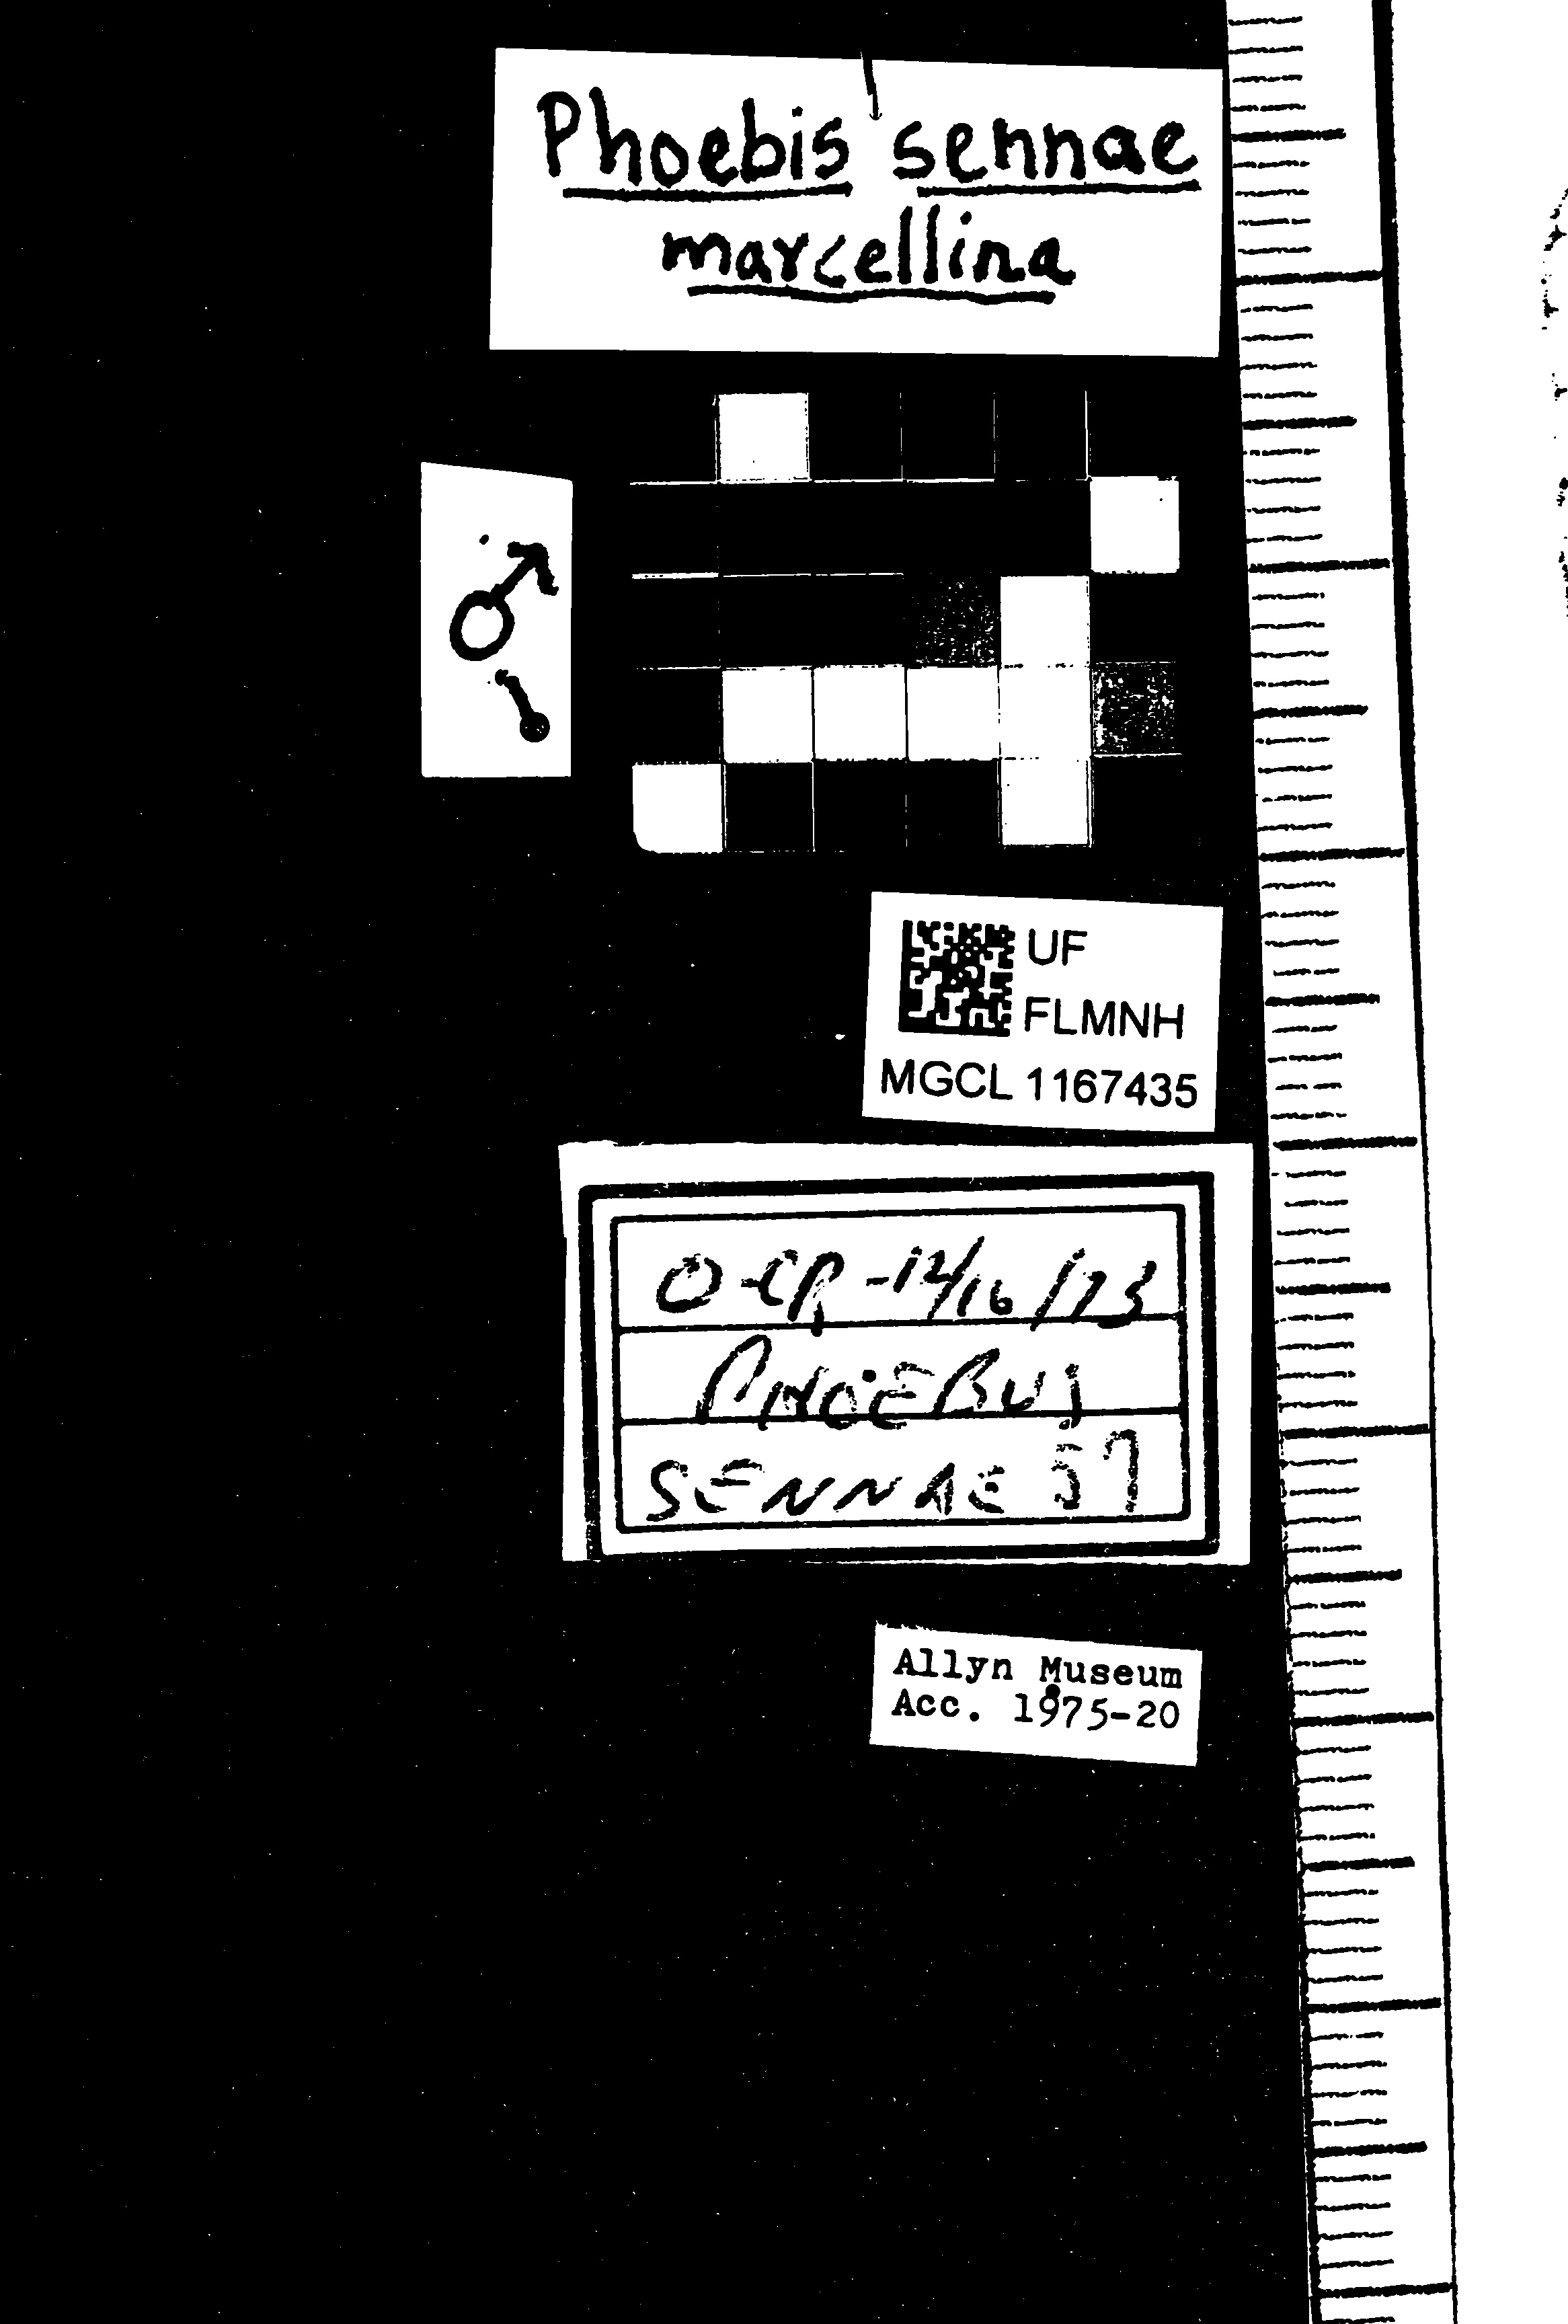 Phoebis sennae
marcellina
♂
UF
FLMNH
MGCL 1167435
O-CR-12/16/73
PHOEBUS
SENNAE 57
Allyn Museum
Acc. 1975-20